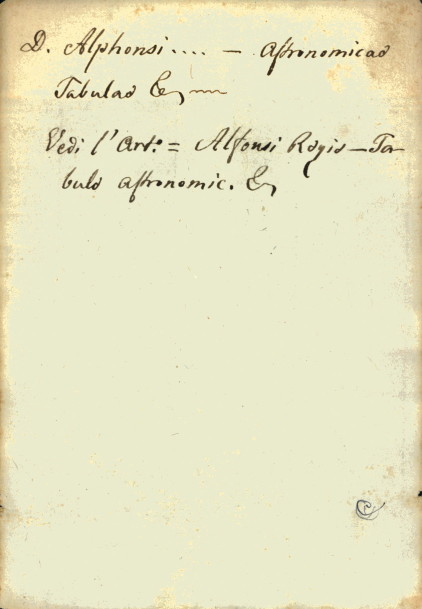 D. Alphonsi .... — Astronomicas
Tabulas &c
Vedi l'Art.º = Alfonsi Regis — Ta-
bulæ astronomic. &c